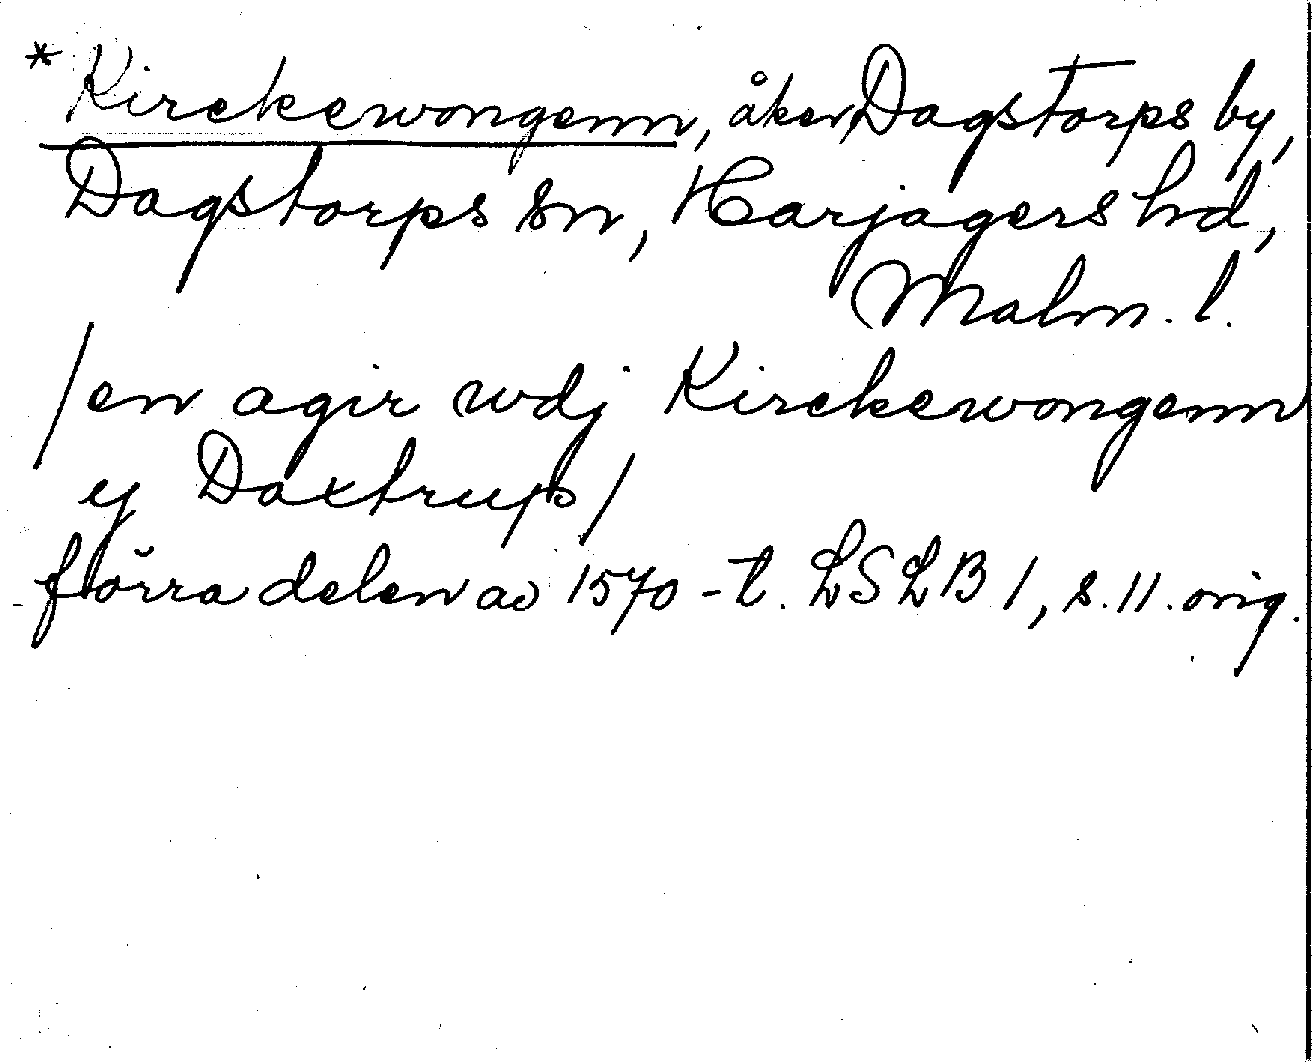 * Kirckewongenn, åker, Dagstorps by,
Dagstorps sn, Harjagers hd,
Malm. l.
/en agir wdj Kirckewongenn
y Daxtrup/
förra delen av 1570-t. LSLB 1, s. 11. orig.